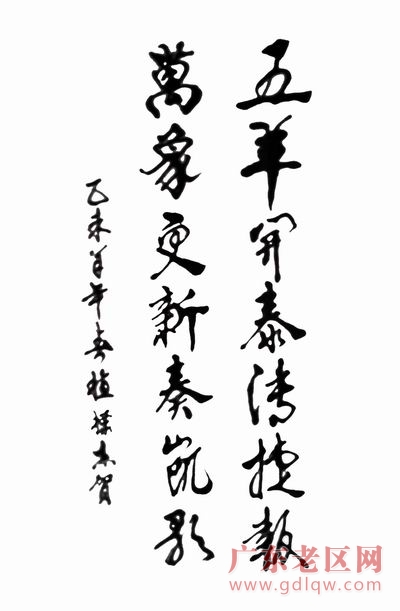 五羊開泰傳捷報
萬象更新奏凱歌
乙未羊年春植賀
广东老区网
www.gdlqw.com